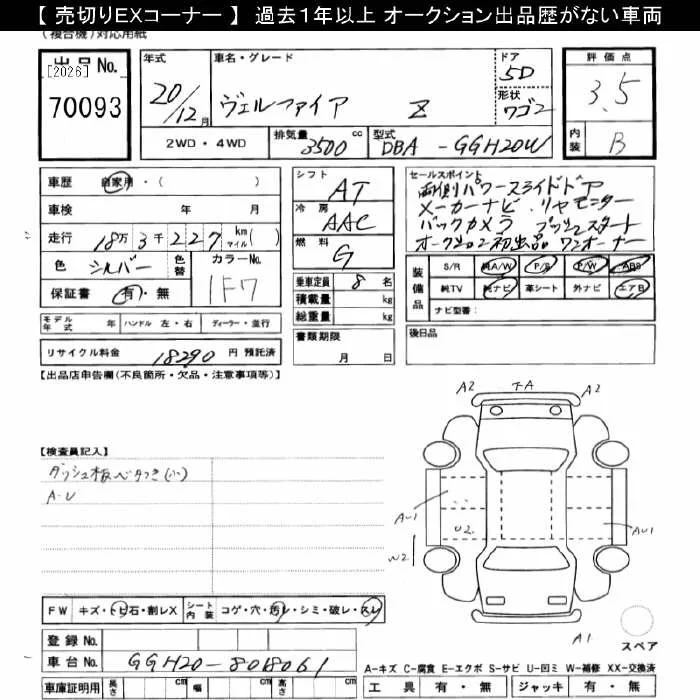 【 売切りEXコーナー 】 過去１年以上 オークション出品歴がない車両
(複合機)対応用紙
出品No.
[2026]
70093
年式
20/12月
車名・グレード
ヴェルファイア Z
ドア
5D
形状
ワゴン
評価点
3.5
2WD・4WD
排気量
3500 cc
型式
DBA - GGH20W
内装
B
車歴 自家用・( )
車検 年 月
走行 18万3千227 km マイル( )
色 シルバー
色替
カラーNo.
1F7
保証書 有・無
シフト
AT
冷房
AAC
燃料
G
乗車定員 8 名
積載量 kg
総重量 kg
書類期限
月 日
セールスポイント
両側パワースライドドア
メーカーナビ リヤモニター
バックカメラ プッシュスタート
オークション初出品 ワンオーナー
装備品
S/R 純A/W P/S P/W ABS
純TV 純ナビ 革シート 外ナビ エアB
ナビ型番:
後日品
モデル年式 年 ハンドル 左・右 ディーラー・並行
リサイクル料金 18290 円 預託済
【出品店申告欄(不良箇所・欠品・注意事項等)】
【検査員記入】
ダッシュ板ベタつき(小)
A-U
A2 TA A2
AU1
U2
W2
AU1
A1
スペア
FW キズ・トビ石・割レX シート内装 コゲ・穴・汚レ・シミ・破レ・スレ
登録No.
車台No. GGH20-8018061
車庫証明用 長さ cm 幅 cm 高さ cm
A-キズ C-腐食 E-エクボ S-サビ U-凹ミ W-補修 XX-交換済
工具 有・無 ジャッキ 有・無